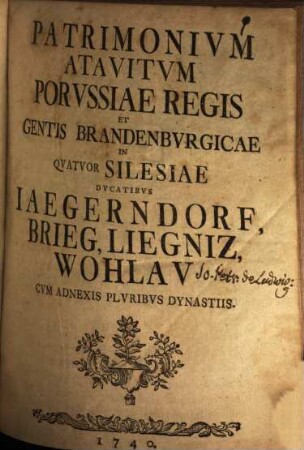 PATRIMONIVM
ATAVITVM
PORVSSIAE REGIS
ET
GENTIS BRANDENBVRGICAE
IN
QVATVOR SILESIAE
DVCATIBVS
IAEGERNDORF,
BRIEG, LIEGNIZ,
WOHLAV Jo. Petr. de Ludwig:
CVM ADNEXIS PLVRIBVS DYNASTIIS.
1740.